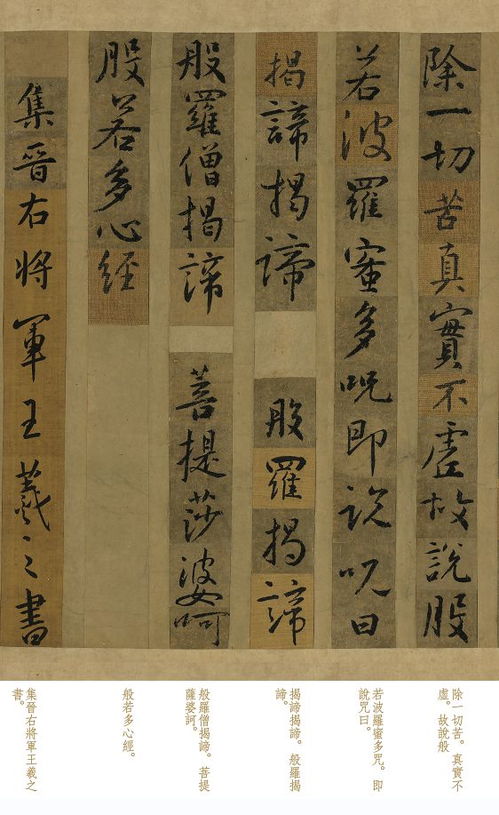 除一切苦真實不虛故說般
若波羅蜜多呪即說呪曰
揭諦揭諦 般羅揭諦
般羅僧揭諦 菩提莎婆呵
般若多心經
集晉右將軍王羲之書
除一切苦。真實不
虛。故說般
若波羅蜜多咒。即
說咒曰。
揭諦揭諦。般羅揭
諦。
般羅僧揭諦。菩提
薩婆訶。
般若多心經。
集晉右將軍王羲之
書。